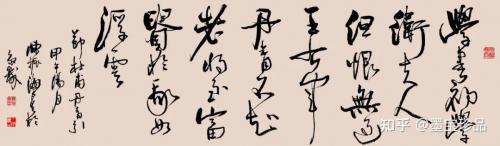 學書初學
衛夫人
但恨無過
王右軍
丹青不知
老將至富
貴於我如
浮雲
杜甫丹青引
甲午陽月
知乎 @墨宝珍品